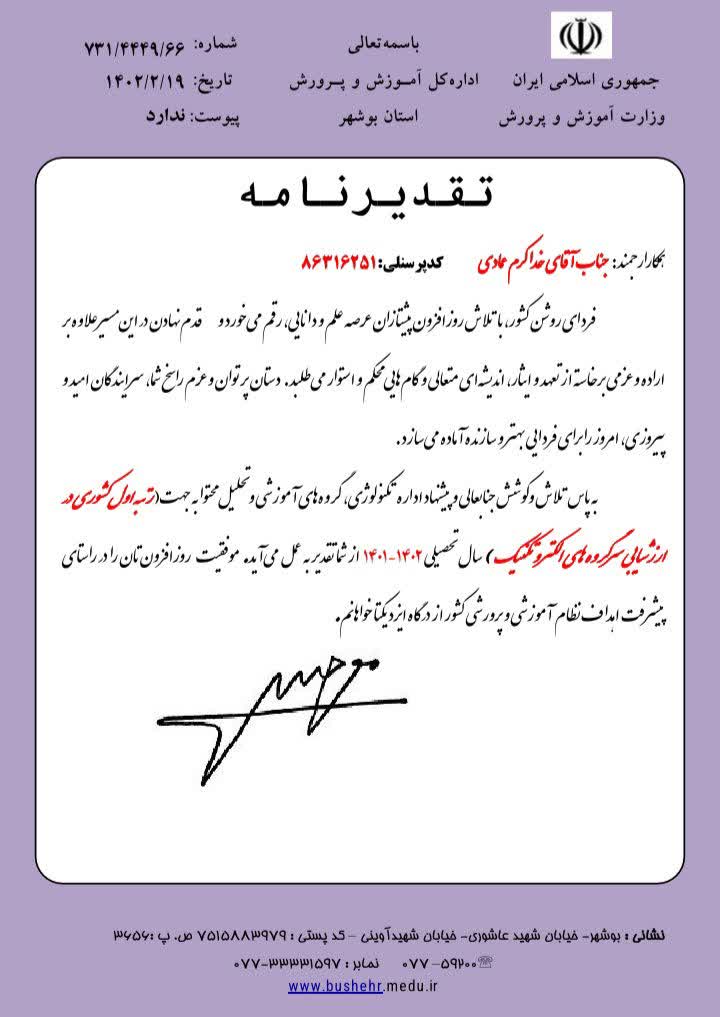 باسمه‌تعالی
جمهوری اسلامی ایران
وزارت آموزش و پرورش
اداره‌کل آموزش و پرورش
استان بوشهر
شماره: ۷۳۱/۴۴۴۹/۶۶
تاریخ: ۱۴۰۲/۲/۱۹
پیوست: ندارد
تقدیرنامه
همکار ارجمند: جناب آقای خداکرم عمادی کدپرسنلی: ۸۶۳۱۶۲۵۱
فردای روشن کشور، با تلاش روزافزون پیشتازان عرصه علم و دانایی، رقم می‌خورد و قدم نهادن در این مسیر علاوه بر
اراده و عزمی برخاسته از تعهد و ایثار، اندیشه‌ای متعالی و گام‌هایی محکم و استوار می‌طلبد. دستان پرتوان و عزم راسخ شما، سرایندگان امید و
پیروزی، امروز را برای فردایی بهتر و سازنده آماده می‌سازد.
به پاس تلاش و کوشش جنابعالی و پیشنهاد اداره تکنولوژی، گروه‌های آموزشی و تحلیل محتوا به جهت (رتبه اول کشوری در
ارزشیابی سرگروه‌های الکتروتکنیک) سال تحصیلی ۱۴۰۲-۱۴۰۱ از شما تقدیر به عمل می‌آید. موفقیت روزافزون‌تان را در راستای
پیشرفت اهداف نظام آموزشی و پرورشی کشور از درگاه ایزد یکتا خواهانم.
نشانی : بوشهر- خیابان شهید عاشوری- خیابان شهیدآوینی – کد پستی : ۷۵۱۵۸۸۳۹۷۹ ص. پ :۳۶۵۶
☏۵۹۲۰۰–۰۷۷ نمابر : ۳۳۳۳۱۵۹۷-۰۷۷
www.bushehr.medu.ir